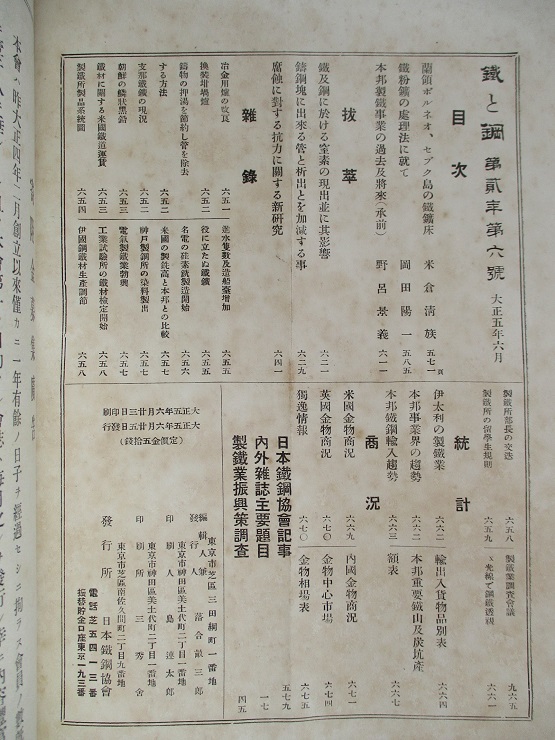 鐵と鋼 第貳年第六號 大正五年六月
目次
蘭領ボルネオ、セブク島の鐵鑛床 米倉淸族 五七一頁
鐵粉鑛の處理法に就て 岡田陽一 五八五
本邦製鐵事業の過去及將來(承前) 野呂景義 六一一
拔萃
鐵及鋼に於ける窒素の現出並に其影響 六二一
鑄鋼塊に出來る管と析出とを加減する事 六二九
腐蝕に對する抗力に關する新硏究 六四一
雜錄
冶金用爐の改良 六五一
換裝坩堝爐 六五二
鑄物の押湯を節約し管を除去
する方法 六五二
支那鐵鑛の現況 六五二
朝鮮の鱗狀黑鉛 六五三
鐵材に關する米國鐵道運賃 六五三
製鐵所製品系統圖 六五四
進水隻數及造船臺增加 六五五
役に立たぬ鐵鑛 六五五
名電の硅素銑製造開始 六五六
米國の製銑高と本邦との比較 六五六
神戶製鋼所の染料製出 六五七
電氣製鐵業勃興 六五七
工業試驗所の鐵材檢定開始 六五八
伊國鋼鐵材生產調節 六五八
製鐵所部長の交迭 六五八
製鐵所の留學生規則 六五九
製鐵業調査會議 九六五
x光線で鋼鐵透視 六六一
統計
伊太利の製鐵業 六六二
本邦事業界の趨勢 六六二
本邦鐵鋼輸入趨勢 六六三
輸出入貨物品別表 六六四
本邦重要鐵山及炭坑產
額表 六六七
商況
米國金物商況 六六九
英國金物商況 六七〇
獨逸情報 六七〇
內國金物商況 六七三
金物中心市場 六七四
金物相場表 六七五
日本鐵鋼協會記事 五七九
內外雜誌主要題目 一七
製鐵業振興策調査 四五
大正五年六月廿三日印刷
大正五年六月廿五日發行
(定價金五拾錢)
東京市芝區三田綱町一番地
編輯人兼發行人 落合毅三郎
東京市神田區美土代町二丁目一番地
印刷人 島連太郎
東京市神田區美土代町二丁目一番地
印刷所 三秀舍
東京市芝區南佐久間町二丁目九番地
發行所 日本鐵鋼協會
電話芝五四一三番
振替貯金口座東京一九三番